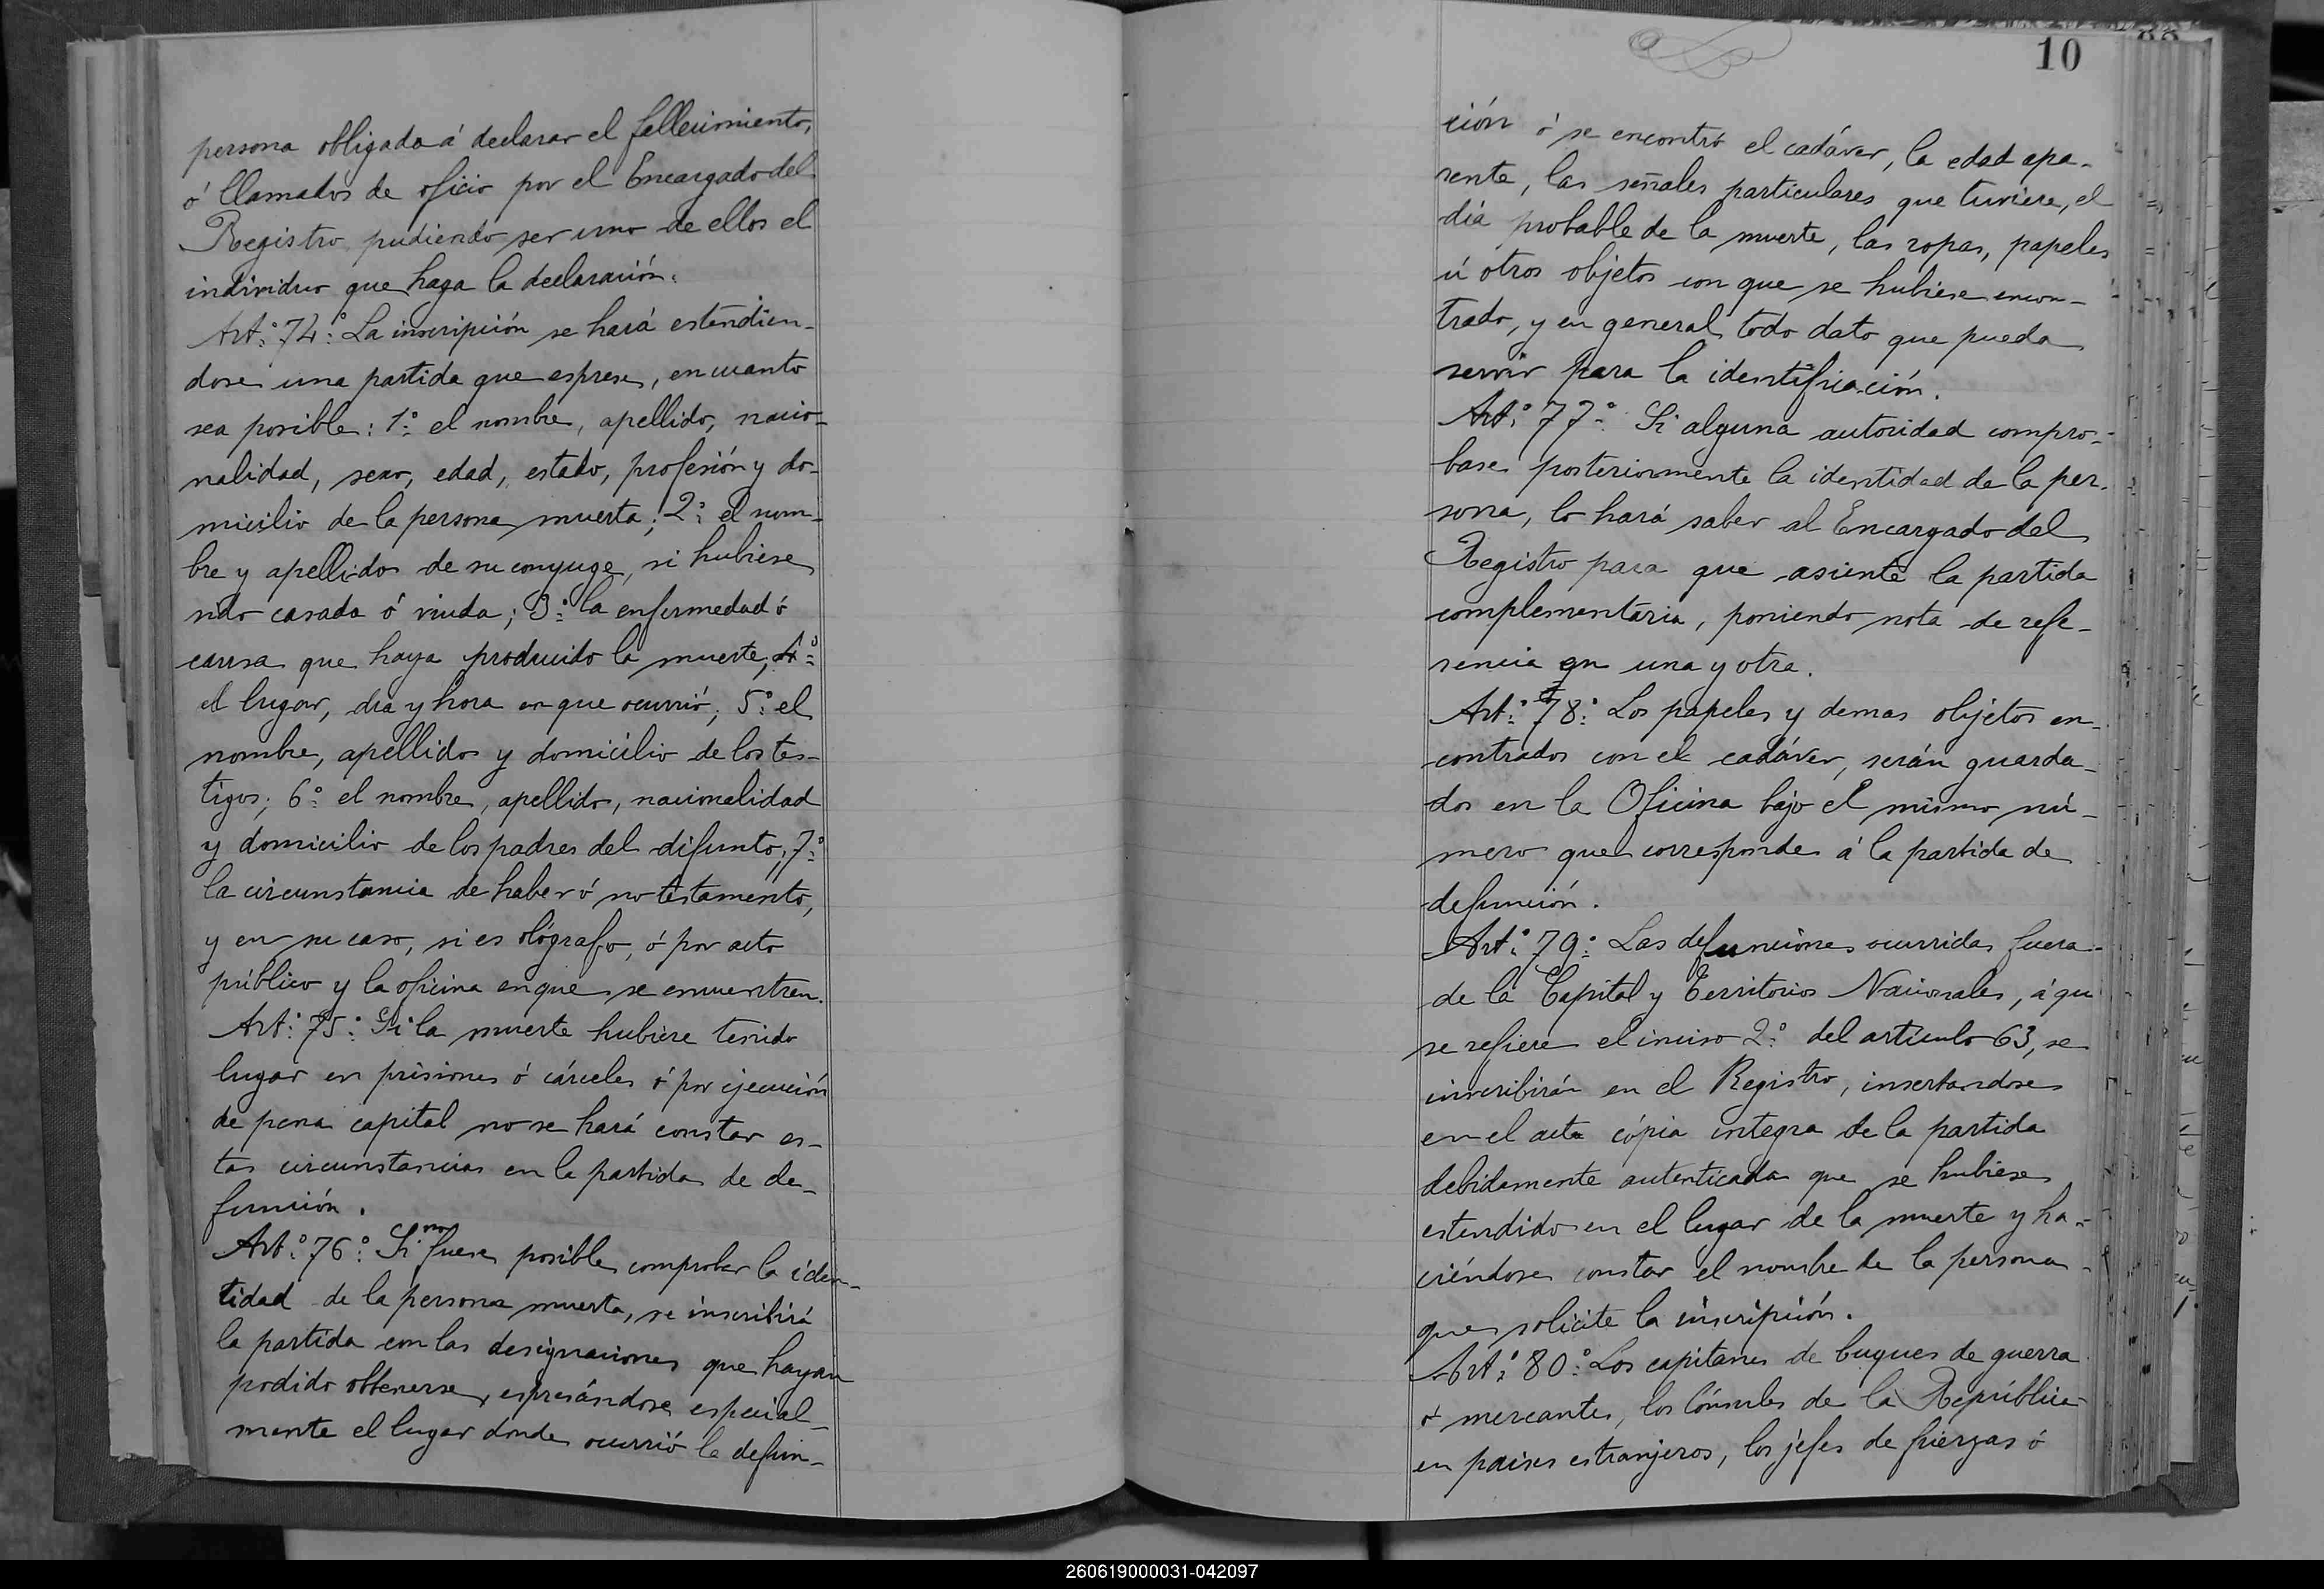 persona obligada á declarar el fallecimiento,
ó llamados de oficio por el Encargado del
Registro pudiendo ser uno de ellos el
individuo que haga la declaración.
Art.º 74.º La inscripción se hará estendien-
dose una partida que esprese, en cuanto
sea posible: 1.º el nombre, apellido, nacio-
nalidad, sexo, edad, estado, profesión y do-
micilio de la persona muerta; 2.º el nom-
bre y apellido de su conyuge, si hubiese
sido casada ó viuda; 3.º la enfermedad ó
causa que haya producido la muerte; 4.º
el lugar, dia y hora en que ocurrió; 5.º el
nombre, apellido y domicilio de los tes-
tigos; 6.º el nombre, apellido, nacionalidad
y domicilio de los padres del difunto; 7.º
la circunstancia de haber ó no testamento,
y en su caso, si es ológrafo, ó por acto
público y la oficina en que se encuentren.
Art.º 75.º Si la muerte hubiere tenido
lugar en prisiones ó cárceles ó por ejecución
de pena capital no se hará constar es-
tas circunstancias en la partida de de-
función.
Art.º 76.º Si no fuese posible comprobar la iden-
tidad de la persona muerta, se inscribirá
la partida con las designaciones que hayan
podido obtenerse, espresándose especial-
mente el lugar donde ocurrió la defun-
10
ción ó se encontró el cadáver, la edad apa-
rente, las señales particulares que tuviere, el
dia probable de la muerte, las ropas, papeles
ú otros objetos con que se hubiese encon-
trado, y en general todo dato que pueda
servir para la identificación.
Art.º 77.º Si alguna autoridad compro-
base posteriormente la identidad de la per-
sona, lo hará saber al Encargado del
Registro para que asiente la partida
complementaria, poniendo nota de refe-
rencia en una y otra.
Art.º 78.º Los papeles y demas objetos en-
contrados con el cadáver, serán guarda-
dos en la Oficina bajo el mismo nú-
mero que corresponde á la partida de
defunción.
Art.º 79.º Las defunciones ocurridas fuera
de la Capital y Territorios Nacionales, á que
se refiere el inciso 2.º del artículo 63, se
inscribirán en el Registro, insertandose
en el acta cópia integra de la partida
debidamente autenticada que se hubiese
estendido en el lugar de la muerte y ha-
ciéndose constar el nombre de la persona
que solicite la inscripción.
Art.º 80.º Los capitanes de buques de guerra
ó mercantes, los Cónsules de la República
en paises estranjeros, los jefes de fuerzas ó
260619000031-042097